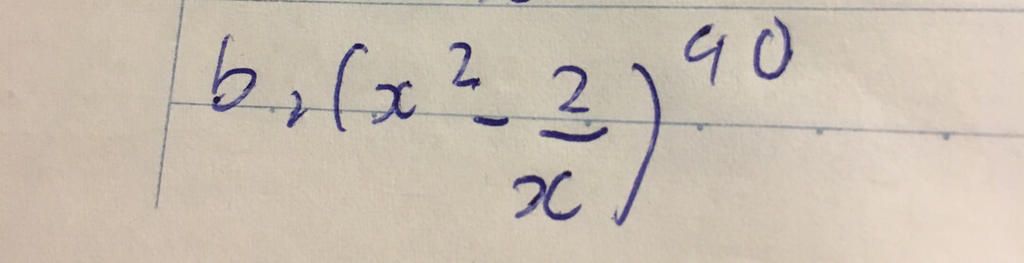 b, (x² - 2/x)⁹⁰